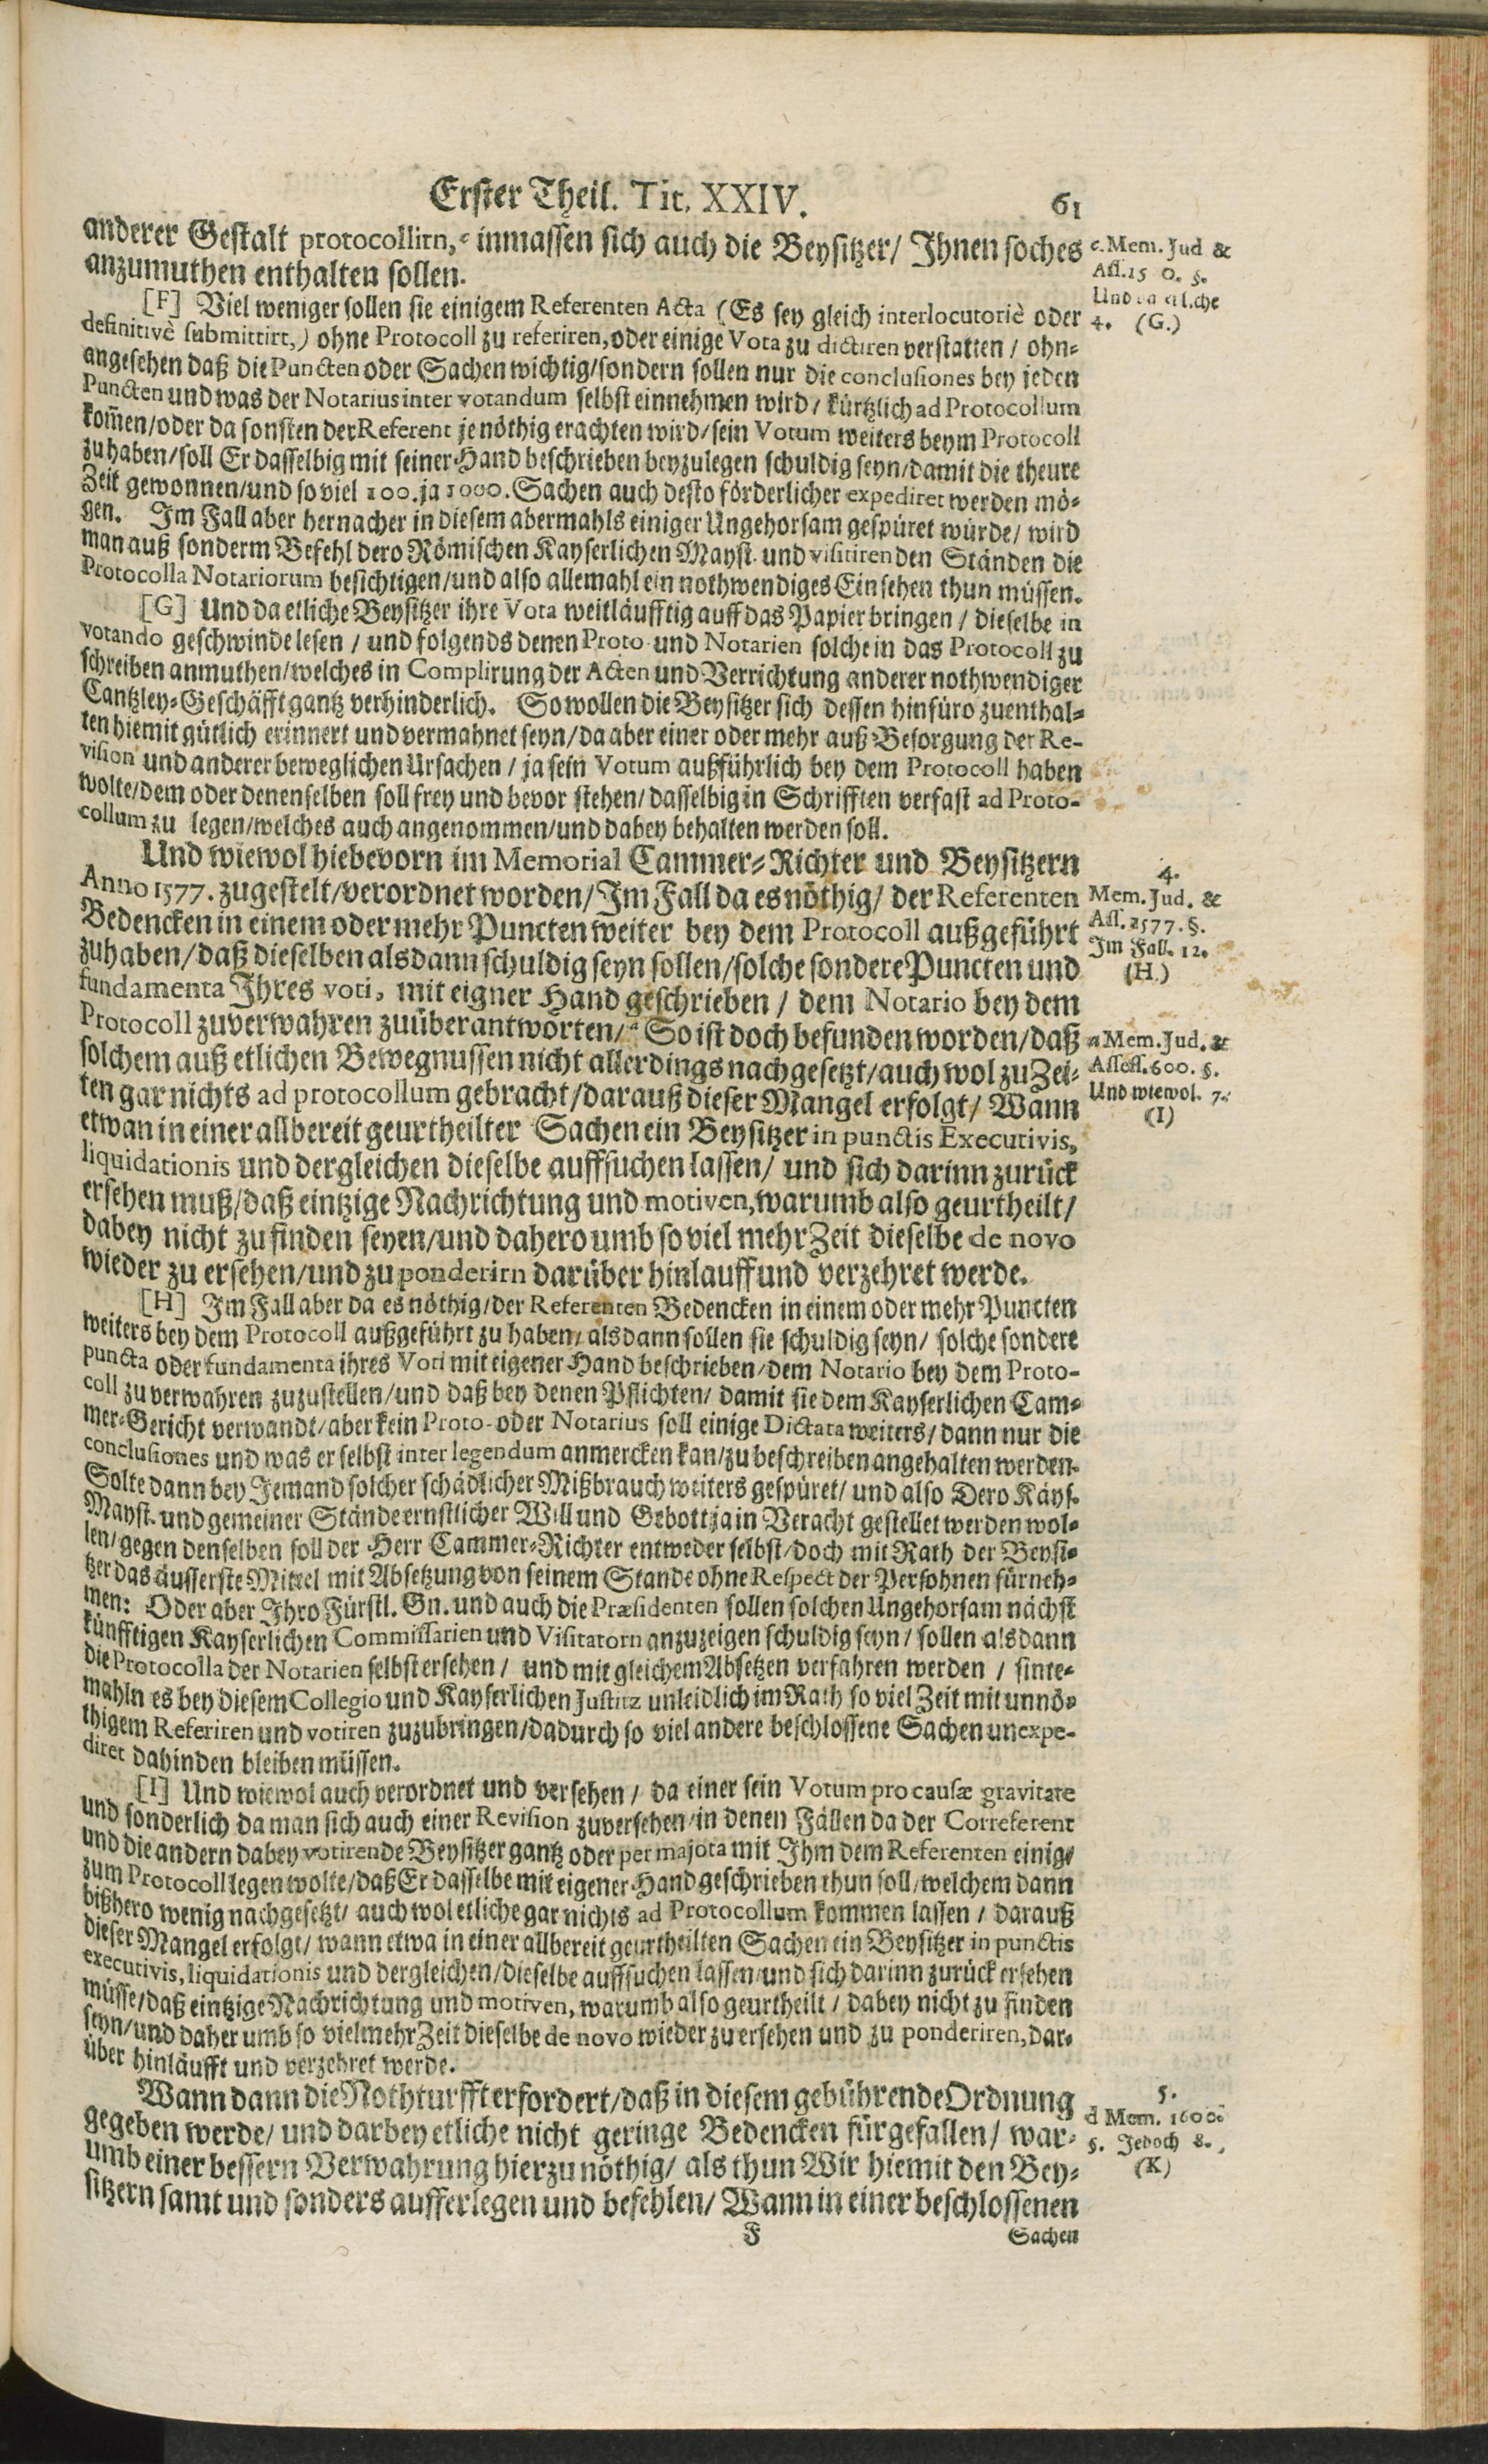 Erster Theil. Tit. XXIV. 61
anderer Gestalt protocollirn, c inmassen sich auch die Beysitzer/ Ihnen soches
anzumuthen enthalten sollen.
c. Mem. Jud &
Ass. 15 0. §.
Und da etl.che
4. (G.)
[F] Viel weniger sollen sie einigem Referenten Acta (Es sey gleich interlocutoriè oder
definitivè submittirt,) ohne Protocoll zu referiren, oder einige Vota zu dictiren verstatten / ohn-
angesehen daß die Puncten oder Sachen wichtig/sondern sollen nur die conclusiones bey jeden
Puncten und was der Notarius inter votandum selbst einnehmen wird / kürtzlich ad Protocollum
kom̃en/oder da sonsten der Referent je nöthig erachten wird/sein Votum weiters beym Protocoll
zu haben/soll Er dasselbig mit seiner Hand beschrieben beyzulegen schuldig seyn/damit die theure
Zeit gewonnen/und so viel 100. ja 1000. Sachen auch desto förderlicher expediret werden mö-
gen. Im Fall aber hernacher in diesem abermahls einiger Ungehorsam gespüret würde/ wird
man auß sonderm Befehl dero Römischen Kayserlichen Mayst. und visitirenden Ständen die
Protocolla Notariorum besichtigen/und also allemahl ein nothwendiges Einsehen thun müssen.
[G] Und da etliche Beysitzer ihre Vota weitläufftig auff das Papier bringen / dieselbe in
votando geschwinde lesen / und folgends denen Proto- und Notarien solche in das Protocoll zu
schreiben anmuthen/welches in Complirung der Acten und Verrichtung anderer nothwendiger
Cantzley-Geschäfft gantz verhinderlich. So wollen die Beysitzer sich dessen hinfüro zuenthal-
ten hiemit gütlich erinnert und vermahnet seyn/da aber einer oder mehr auß Besorgung der Re-
vision und anderer beweglichen Ursachen / ja sein Votum außführlich bey dem Protocoll haben
wolte/dem oder denenselben soll frey und bevor stehen/ dasselbig in Schrifften verfast ad Proto-
collum zu legen/welches auch angenommen/und dabey behalten werden soll.
Und wiewol hiebevorn im Memorial Cammer-Richter und Beysitzern
Anno 1577. zugestelt/verordnet worden/Im Fall da es nöthig/ der Referenten
Bedencken in einem oder mehr Puncten weiter bey dem Protocoll außgeführt
zuhaben/daß dieselben alsdann schuldig seyn sollen/solche sondere Puncten und
fundamenta Ihres voti, mit eigner Hand geschrieben / dem Notario bey dem
Protocoll zuverwahren zuüberantworten/ a So ist doch befunden worden/daß
solchem auß etlichen Bewegnussen nicht allerdings nachgesetzt/auch wol zu Zei-
ten gar nichts ad protocollum gebracht/darauß dieser Mangel erfolgt/ Wann
etwan in einer allbereit geurtheilter Sachen ein Beysitzer in punctis Executivis,
liquidationis und dergleichen dieselbe auffsuchen lassen/ und sich darinn zurück
ersehen muß/daß eintzige Nachrichtung und motiven, warumb also geurtheilt/
dabey nicht zu finden seyen/und dahero umb so viel mehr Zeit dieselbe de novo
wieder zu ersehen/und zu ponderirn darüber hinlauff und verzehret werde.
4.
Mem. Jud. &
Ass. 1577. §.
Im Fall. 12.
(H.)
a Mem. Jud. &
Assess. 600. §.
Und wiewol. 7.
(I)
[H] Im Fall aber da es nöthig/der Referenten Bedencken in einem oder mehr Puncten
weiters bey dem Protocoll außgeführt zu haben/ alsdann sollen sie schuldig seyn/ solche sondere
puncta oder fundamenta ihres Voti mit eigener Hand beschrieben/dem Notario bey dem Proto-
coll zu verwahren zuzustellen/und daß bey denen Pflichten/ damit sie dem Kayserlichen Cam-
mer-Gericht verwandt/aber kein Proto- oder Notarius soll einige Dictata weiters/ dann nur die
conclusiones und was er selbst inter legendum anmercken kan/zu beschreiben angehalten werden.
Solte dann bey Jemand solcher schädlicher Mißbrauch weiters gespüret/ und also Dero Käys.
Mayst. und gemeiner Stände ernstlicher Will und Gebott ja in Veracht gestellet werden wol-
len/ gegen denselben soll der Herr Cammer-Richter entweder selbst/doch mit Rath der Beysi-
tzer das äusserste Mittel mit Absetzung von seinem Stande ohne Respect der Persohnen fürneh-
men: Oder aber Ihro Fürstl. Gn. und auch die Præsidenten sollen solchen Ungehorsam nächst
künfftigen Kayserlichen Commissarien und Visitatorn anzuzeigen schuldig seyn / sollen alsdann
die Protocolla der Notarien selbst ersehen / und mit gleichem Absetzen verfahren werden / sinte-
mahln es bey diesem Collegio und Kayserlichen Justitz unleidlich im Rath so viel Zeit mit unnö-
thigem Referiren und votiren zuzubringen/dadurch so viel andere beschlossene Sachen unexpe-
diret dahinden bleiben müssen.
[I] Und wiewol auch verordnet und versehen / da einer sein Votum pro causæ gravitate
und sonderlich da man sich auch einer Revision zuversehen/in denen Fällen da der Correferent
und die andern dabey votirende Beysitzer gantz oder per majora mit Ihm dem Referenten einig/
zum Protocoll legen wolte/daß Er dasselbe mit eigener Hand geschrieben thun soll/welchem dann
bißhero wenig nachgesetzt/ auch wol etliche gar nichts ad Protocollum kommen lassen / darauß
dieser Mangel erfolgt/ wann etwa in einer allbereit geurtheilten Sachen ein Beysitzer in punctis
executivis, liquidationis und dergleichen/dieselbe auffsuchen lassen/und sich darinn zurück ersehen
müsse/daß eintzige Nachrichtung und motiven, warumb also geurtheilt / dabey nicht zu finden
seyn/und daher umb so vielmehr Zeit dieselbe de novo wieder zu ersehen und zu ponderiren, dar-
über hinläufft und verzehret werde.
Wann dann die Nothturfft erfordert/daß in diesem gebührende Ordnung
gegeben werde/ und darbey etliche nicht geringe Bedencken fürgefallen/ war-
umb einer bessern Verwahrung hierzu nöthig/ als thun Wir hiemit den Bey-
sitzern samt und sonders aufferlegen und befehlen/ Wann in einer beschlossenen
5.
d Mem. 1600.
§. Jedoch 8.
(K)
F Sachen